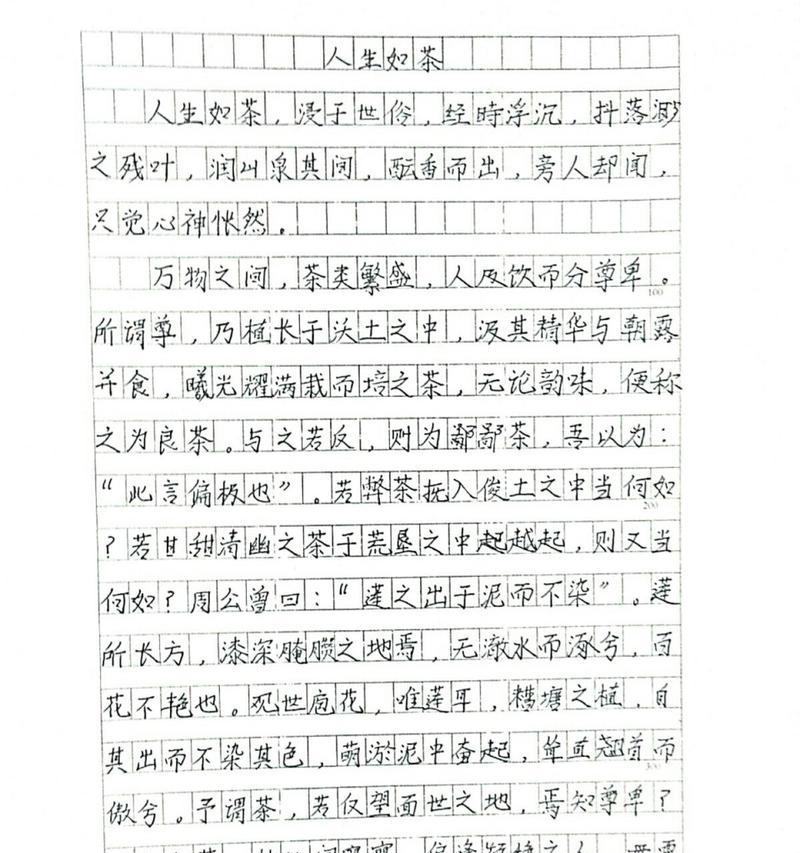 人生如茶
人生如茶，浸于世俗，经時浮沉，抖落渺
之残叶，润山泉其间，酝香而出，旁人却闻，
只觉心神怅然。
万物之间，茶类繁盛，人反饮而分尊卑。
100
所谓尊，乃植长于沃土之中，汲其精华与朝露
并食，曦光耀满栽而培之茶，无论韵味，便称
之为良茶。与之若反，则为鄙鄙茶，吾以为：
“此言偏极也”。若弊茶抚入俊土之中当何如
200
？若甘甜清幽之茶于荒垦之中起越起，则又当
何如？周公曾曰：“莲之出于泥而不染”。莲
所长方，漆深腌臜之地焉，无澈水而涿兮，百
花不艳也。观世庖花，唯莲耳，糟塘之植，自
其出而不染其色，萌淤泥中奋起，耸直翘首而
300
傲兮。予谓茶，若仅望面世之地，焉知尊卑？